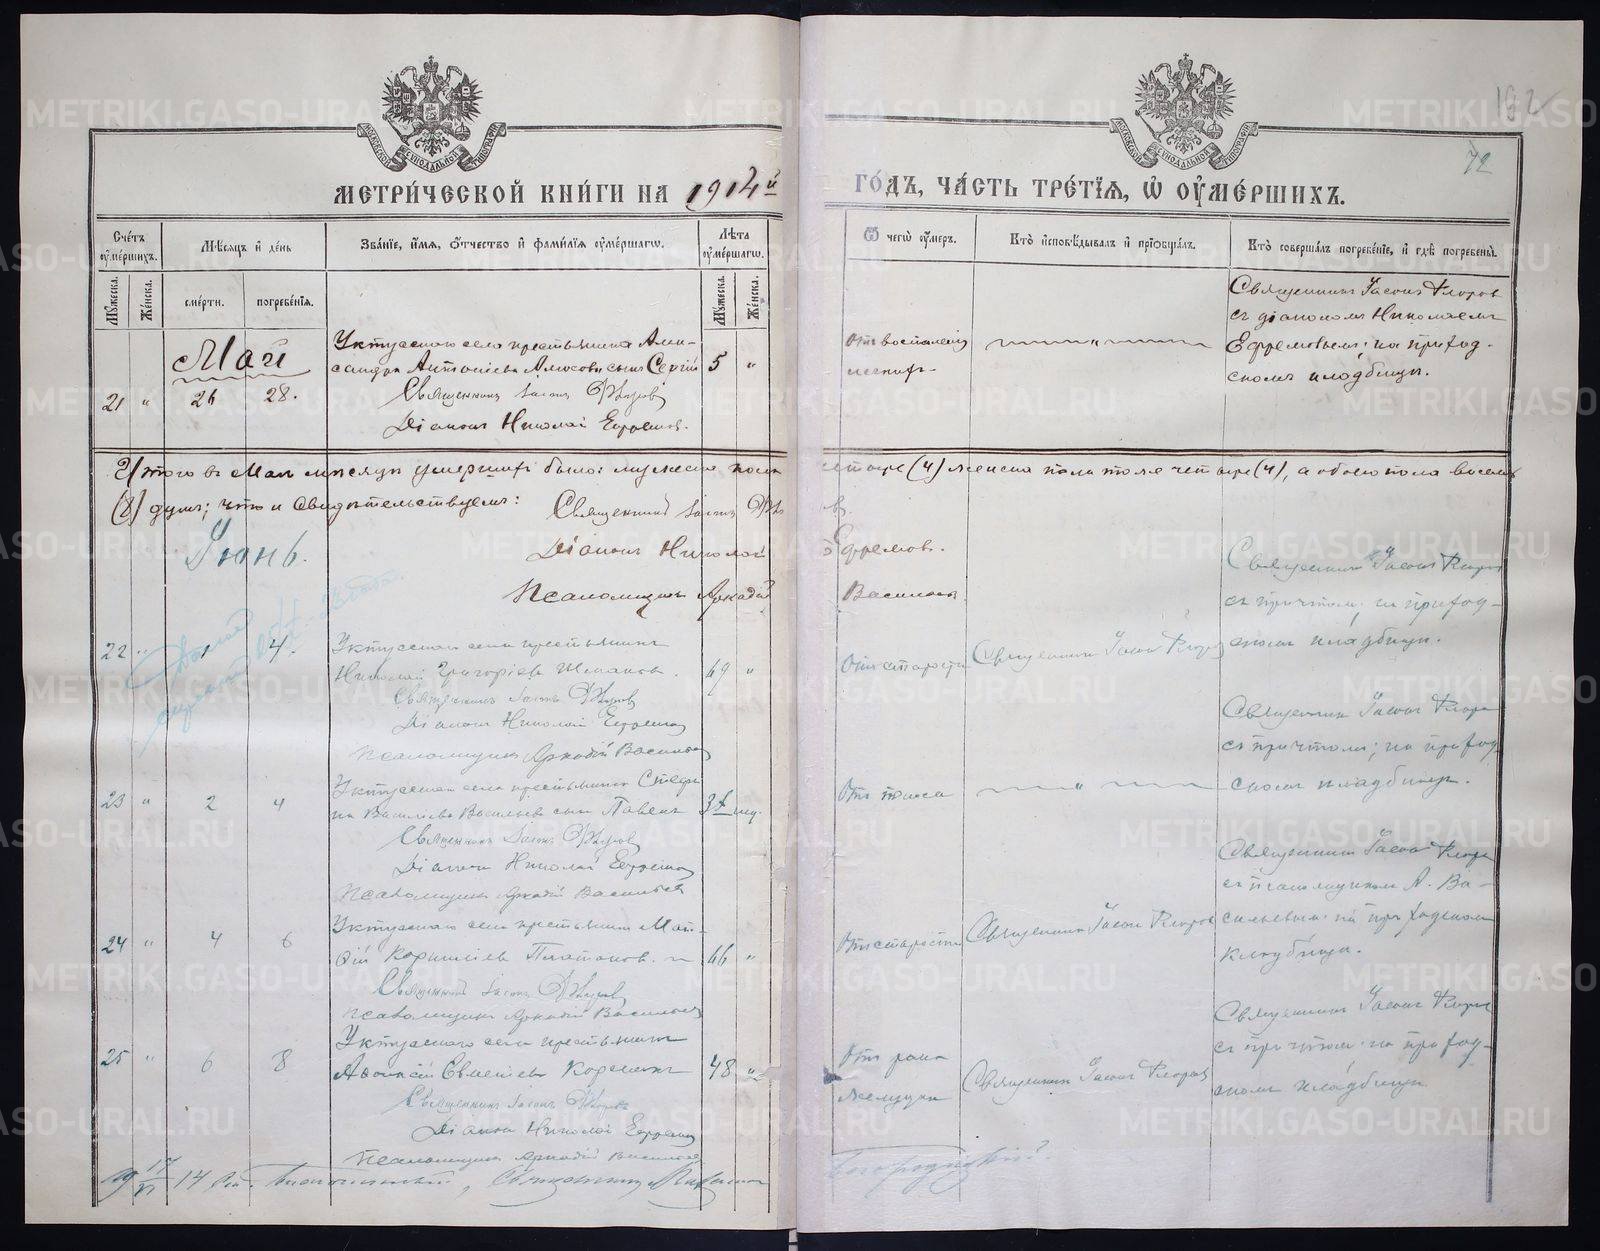 МЕТРИ́ЧЕСКОЙ КНИ́ГИ НА 1914 й ГО́ДЪ, ЧА́СТЬ ТРЕ́ТЇѦ, Ѡ҆ ОУ҆МЕ́РШИХЪ.
192
72
Сче́тъ оу҆ме́ршихъ.
Мѣ́сяцъ и҆ де́нь
Зва́нїе, и҆́мя, ѻ҆́тчество и҆ фами́лїя оу҆ме́ршагѡ.
Лѣ́та оу҆ме́ршагѡ.
Ѿ чегѡ̀ оу҆́меръ.
Кто̀ и҆сповѣ́дывалъ и҆ прїѡбща́лъ.
Кто̀ соверша́лъ погребе́нїе, и҆ гдѣ̀ погребены̀.
Му́жеска.
Же́нска.
сме́рти.
погребе́нїя.
Му́жеска.
Же́нска.
Май
21 " 26 28.
Уктусскаго села крестьянина Алек-
сандра Антоніева Алюсова сынъ Сергій 5 "
Священникъ Іасонъ Флоровъ
Діаконъ Николай Ефремовъ.
Отъ воспаленія
легкихъ.
Священникъ Іасонъ Флоровъ
съ діакономъ Николаемъ
Ефремовымъ: на приход-
скомъ кладбищѣ.
Итого въ Маѣ мѣсяцѣ умершихъ было: мужеска пола четыре (4) женска пола тоже четыре (4), а обоего пола восемь
(8) душъ; что и свидѣтельствуемъ: Священникъ Іасонъ Флоровъ.
Діаконъ Николай Ефремовъ.
Псаломщикъ Аркадій Васильевъ.
Іюнь.
22 " 1 4.
Уктусскаго села крестьянинъ
Николай Григорьевъ 69 "
Священникъ Іасонъ Флоровъ
Діаконъ Николай Ефремовъ
Псаломщикъ Аркадій Васильевъ
Отъ старости
Священникъ Іасонъ Флоровъ
Священникъ Іасонъ Флоровъ
съ причтомъ; на приход-
скомъ кладбищѣ.
23 " 2 4
Уктусскаго села крестьянина Стефа-
на Васильева сынъ Павелъ
Священникъ Іасонъ Флоровъ
Діаконъ Николай Ефремовъ
Псаломщикъ Аркадій Васильевъ
Священникъ Іасонъ Флоровъ
съ причтомъ; на приход-
скомъ кладбищѣ.
24 " 4 6
Уктусскаго села крестьянинъ Мат-
ѳій Корниліевъ Платоновъ. 66 "
Священникъ Іасонъ Флоровъ
Псаломщикъ Аркадій Васильевъ
Отъ старости
Священникъ Іасонъ Флоровъ
Священникъ Іасонъ Флоровъ
съ псаломщикомъ А. Ва-
сильевымъ: на приходскомъ
кладбищѣ.
25 " 6 8
Уктусскаго села крестьянинъ
48 "
Священникъ Іасонъ Флоровъ
Діаконъ Николай Ефремовъ
Псаломщикъ Аркадій Васильевъ
Отъ рака
желудка
Священникъ Іасонъ Флоровъ
Священникъ Іасонъ Флоровъ
съ причтомъ: на приход-
скомъ кладбищѣ.
METRIKI.GASO-URAL.RU